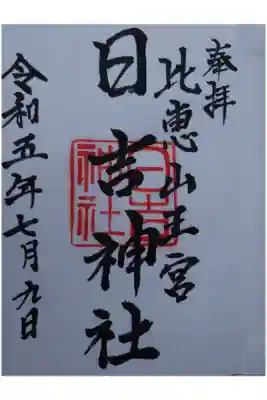 奉拝
比恵山王宮
日吉神社
令和五年七月九日
日吉
神社